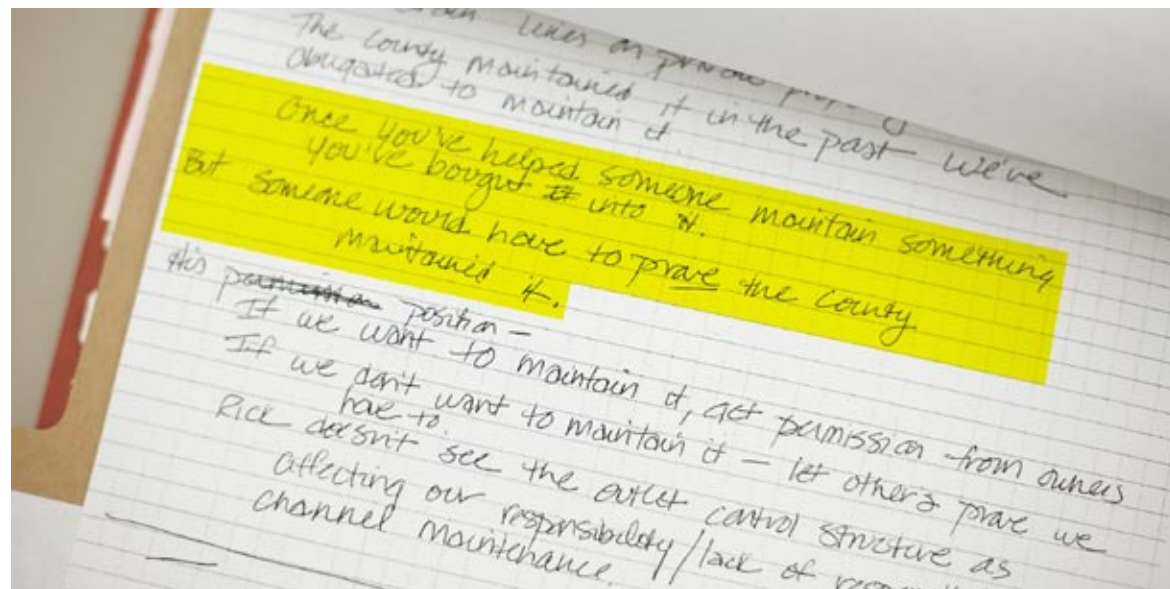 lines on private
The County maintained it in the past – we've
obligated to maintain it.
Once you've helped someone maintain something
you've bought it into it.
But someone would have to prove the County
maintained it.
His permission position –
If we want to maintain it, get permission from owners
If we don't want to maintain it – let others prove we
have to.
Rick doesn't see the outlet control structure as
affecting our responsibility/lack of
channel maintenance.